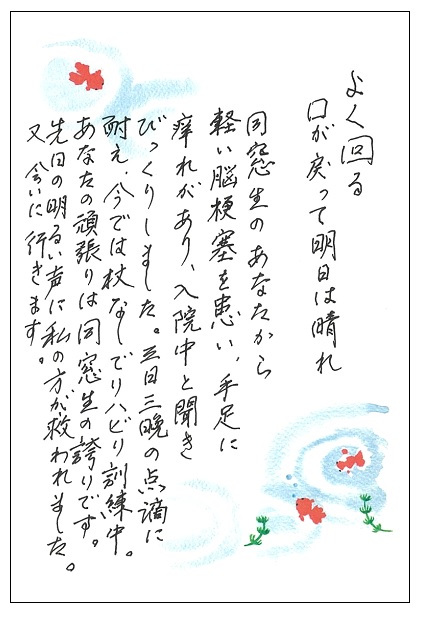 よく回る
口が戻って明日は晴れ
同窓生のあなたから
軽い脳梗塞を患い、手足に
痺れがあり、入院中と聞き
びっくりしました。三日三晩の点滴に
耐え、今では杖なしでリハビリ訓練中。
あなたの頑張りは同窓生の誇りです。
先日の明るい声に私の方が救われました。
又、会いに行きます。